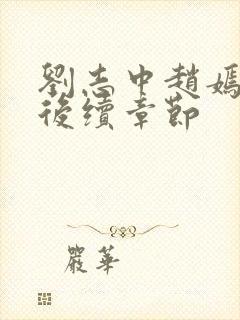 劉志中趙嫣
後續章節
嚴華